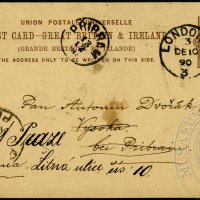 UNION POSTALE UNIVERSELLE
POST CARD-GREAT BRITAIN & IRELAND
(GRANDE BRETAGNE ET IRLANDE)
THE ADDRESS ONLY TO BE WRITTEN ON THIS SIDE.
PŘIBRAM
LONDON
3
DE 10
90
3
Pan Antonin Dvořák
Vysoka
bei Přibram
v Praze
Žitna ulice čís 10